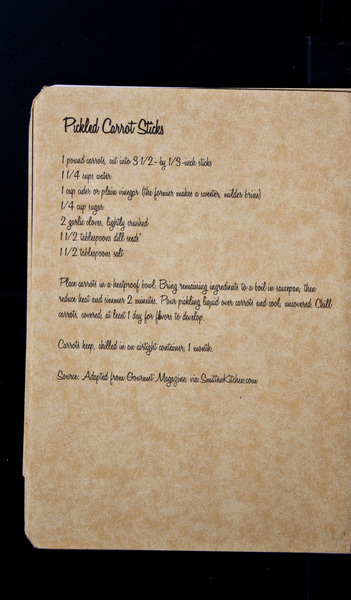 Pickled Carrot Sticks
1 pound carrots, cut into 3 1/2- by 1/3-inch sticks
1 1/4 cups water
1 cup cider or plain vinegar (the former makes a sweeter, milder brine)
1/4 cup sugar
2 garlic cloves, lightly crushed
1 1/2 tablespoons dill seeds*
1 1/2 tablespoons salt
Place carrots in a heatproof bowl. Bring remaining ingredients to a boil in saucepan, then
reduce heat and simmer 2 minutes. Pour pickling liquid over carrots and cool, uncovered. Chill
carrots, covered, at least 1 day for flavors to develop.
Carrots keep, chilled in an airtight container, 1 month.
Source: Adapted from Gourmet Magazine, via SmittenKitchen.com